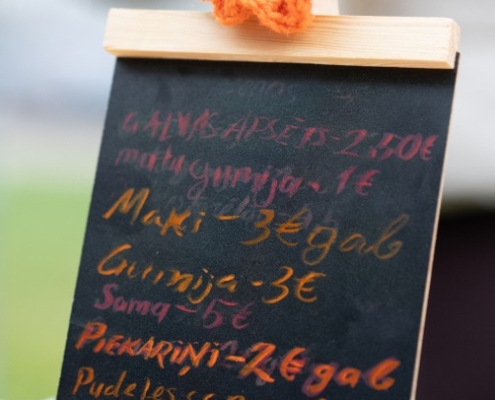 GALVAS APSĒJS - 2.50€
matu gumija - 1€
Maki - 3€ gab
Gumija - 3€
Soma - 5€
PIEKARIŅI - 2€ gab